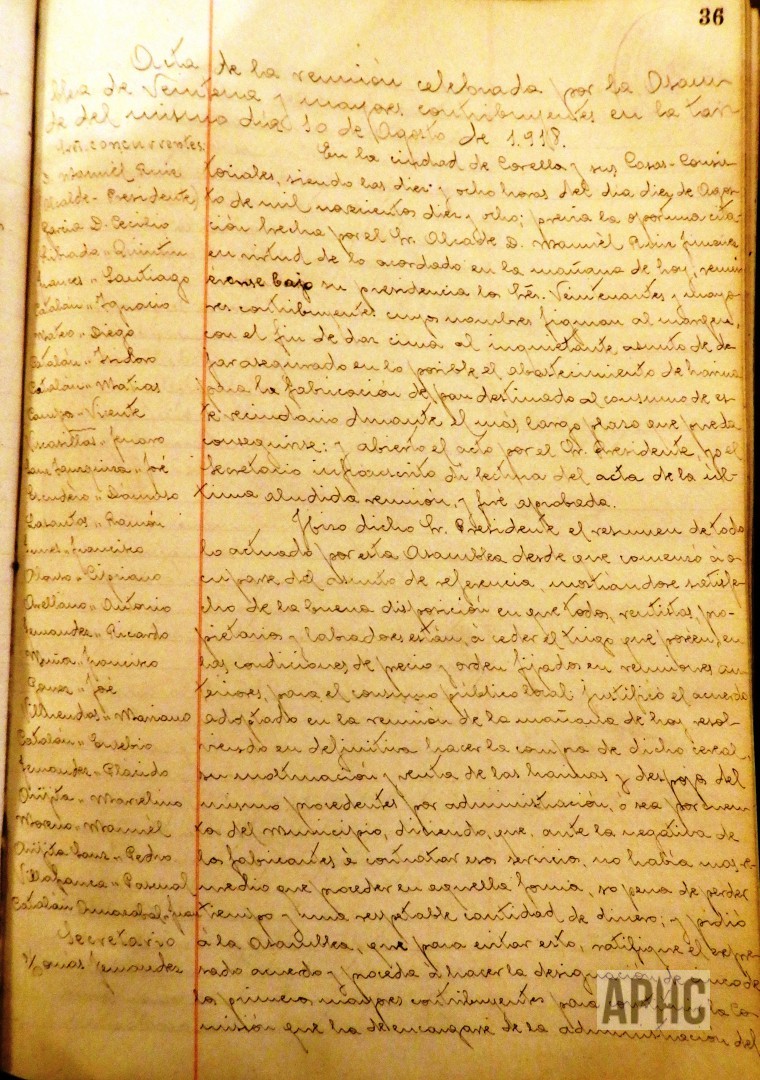 36
Acta de la reunión celebrada por la Asam-
blea de Veintena y mayores contribuyentes en la tar-
de del mismo día 10 de Agosto de 1.918.
concurrentes
D. Manuel Ruiz
(Alcalde-Presidente)
García D. Cecilio
Quintín
Frances " Santiago
Catalán " Ignacio
Mateo " Diego
Catalán " Isidoro
Catalán " Matías
Vicente
Jenaro
Sanz " José
Escudero " Dámaso
Lasantas " Ramón
Francisco
Alonso " Cipriano
Arellano " Antonio
Fernandez " Ricardo
Francisco
José
Villuendas " Mariano
Catalán " Eusebio
Fernandez " Plácido
Marcelino
Moreno " Manuél
Sanz " Pedro
Villafranca " Pascual
Catalán
Secretario
Fernandez
En la ciudad de Corella y sus Casas-Consis-
toriales, siendo las diez y ocho horas del día diez de Agos-
to de mil novecientos diez y ocho; previa la oportuna cita-
ción hecha por el Sr. Alcalde D. Manuél Ruiz
en virtud de lo acordado en la mañana de hoy, reuni
eronse bajo su presidencia los Sres. Veintenantes y mayo-
res contribuyentes cuyos nombres figuran al margen,
con el fin de dar cima al inquietante asunto de de-
jar asegurado en lo posible el abastecimiento de harinas
para la fabricación de pan destinado al consumo de es-
te vecindario durante el mas largo plazo que pueda
conseguirse; y abierto el acto por el Sr. Presidente, yo el
Secretario infrascrito di lectura del acta de la úl-
tima aludida reunión, y fué aprobada.
Hizo dicho Sr. Presidente el resumen de todo
lo actuado por esta Asamblea desde que comenzó á o-
cuparse del asunto de referencia, mostrandose satisfe-
cho de la buena disposición en que todos, rentistas, pro-
pietarios y labradores están, á ceder el trigo que poseen, en
las condiciones de precio y orden fijados en reuniones an-
teriores, para el consumo público local; justificó el acuerdo
adoptado en la reunión de la mañana de hoy, resol-
viendo en definitiva hacer la compra de dicho cereal,
su molturación y venta de las harinas y despojos del
mismo procedentes, por administración, ó sea por cuen-
ta del Municipio, diciendo, que, ante la negativa de
los fabricantes á contratar esos servicios, no había mas re-
medio que proceder en aquella forma, so pena de perder
tiempo y una respetable cantidad de dinero; y pidió
á la Asamblea, que para evitar esto, ratifique el expre-
sado acuerdo y proceda á hacer la designación de
los primeros mayores contribuyentes para constituir la Co-
misión que ha de encargarse de la administración del
APHC